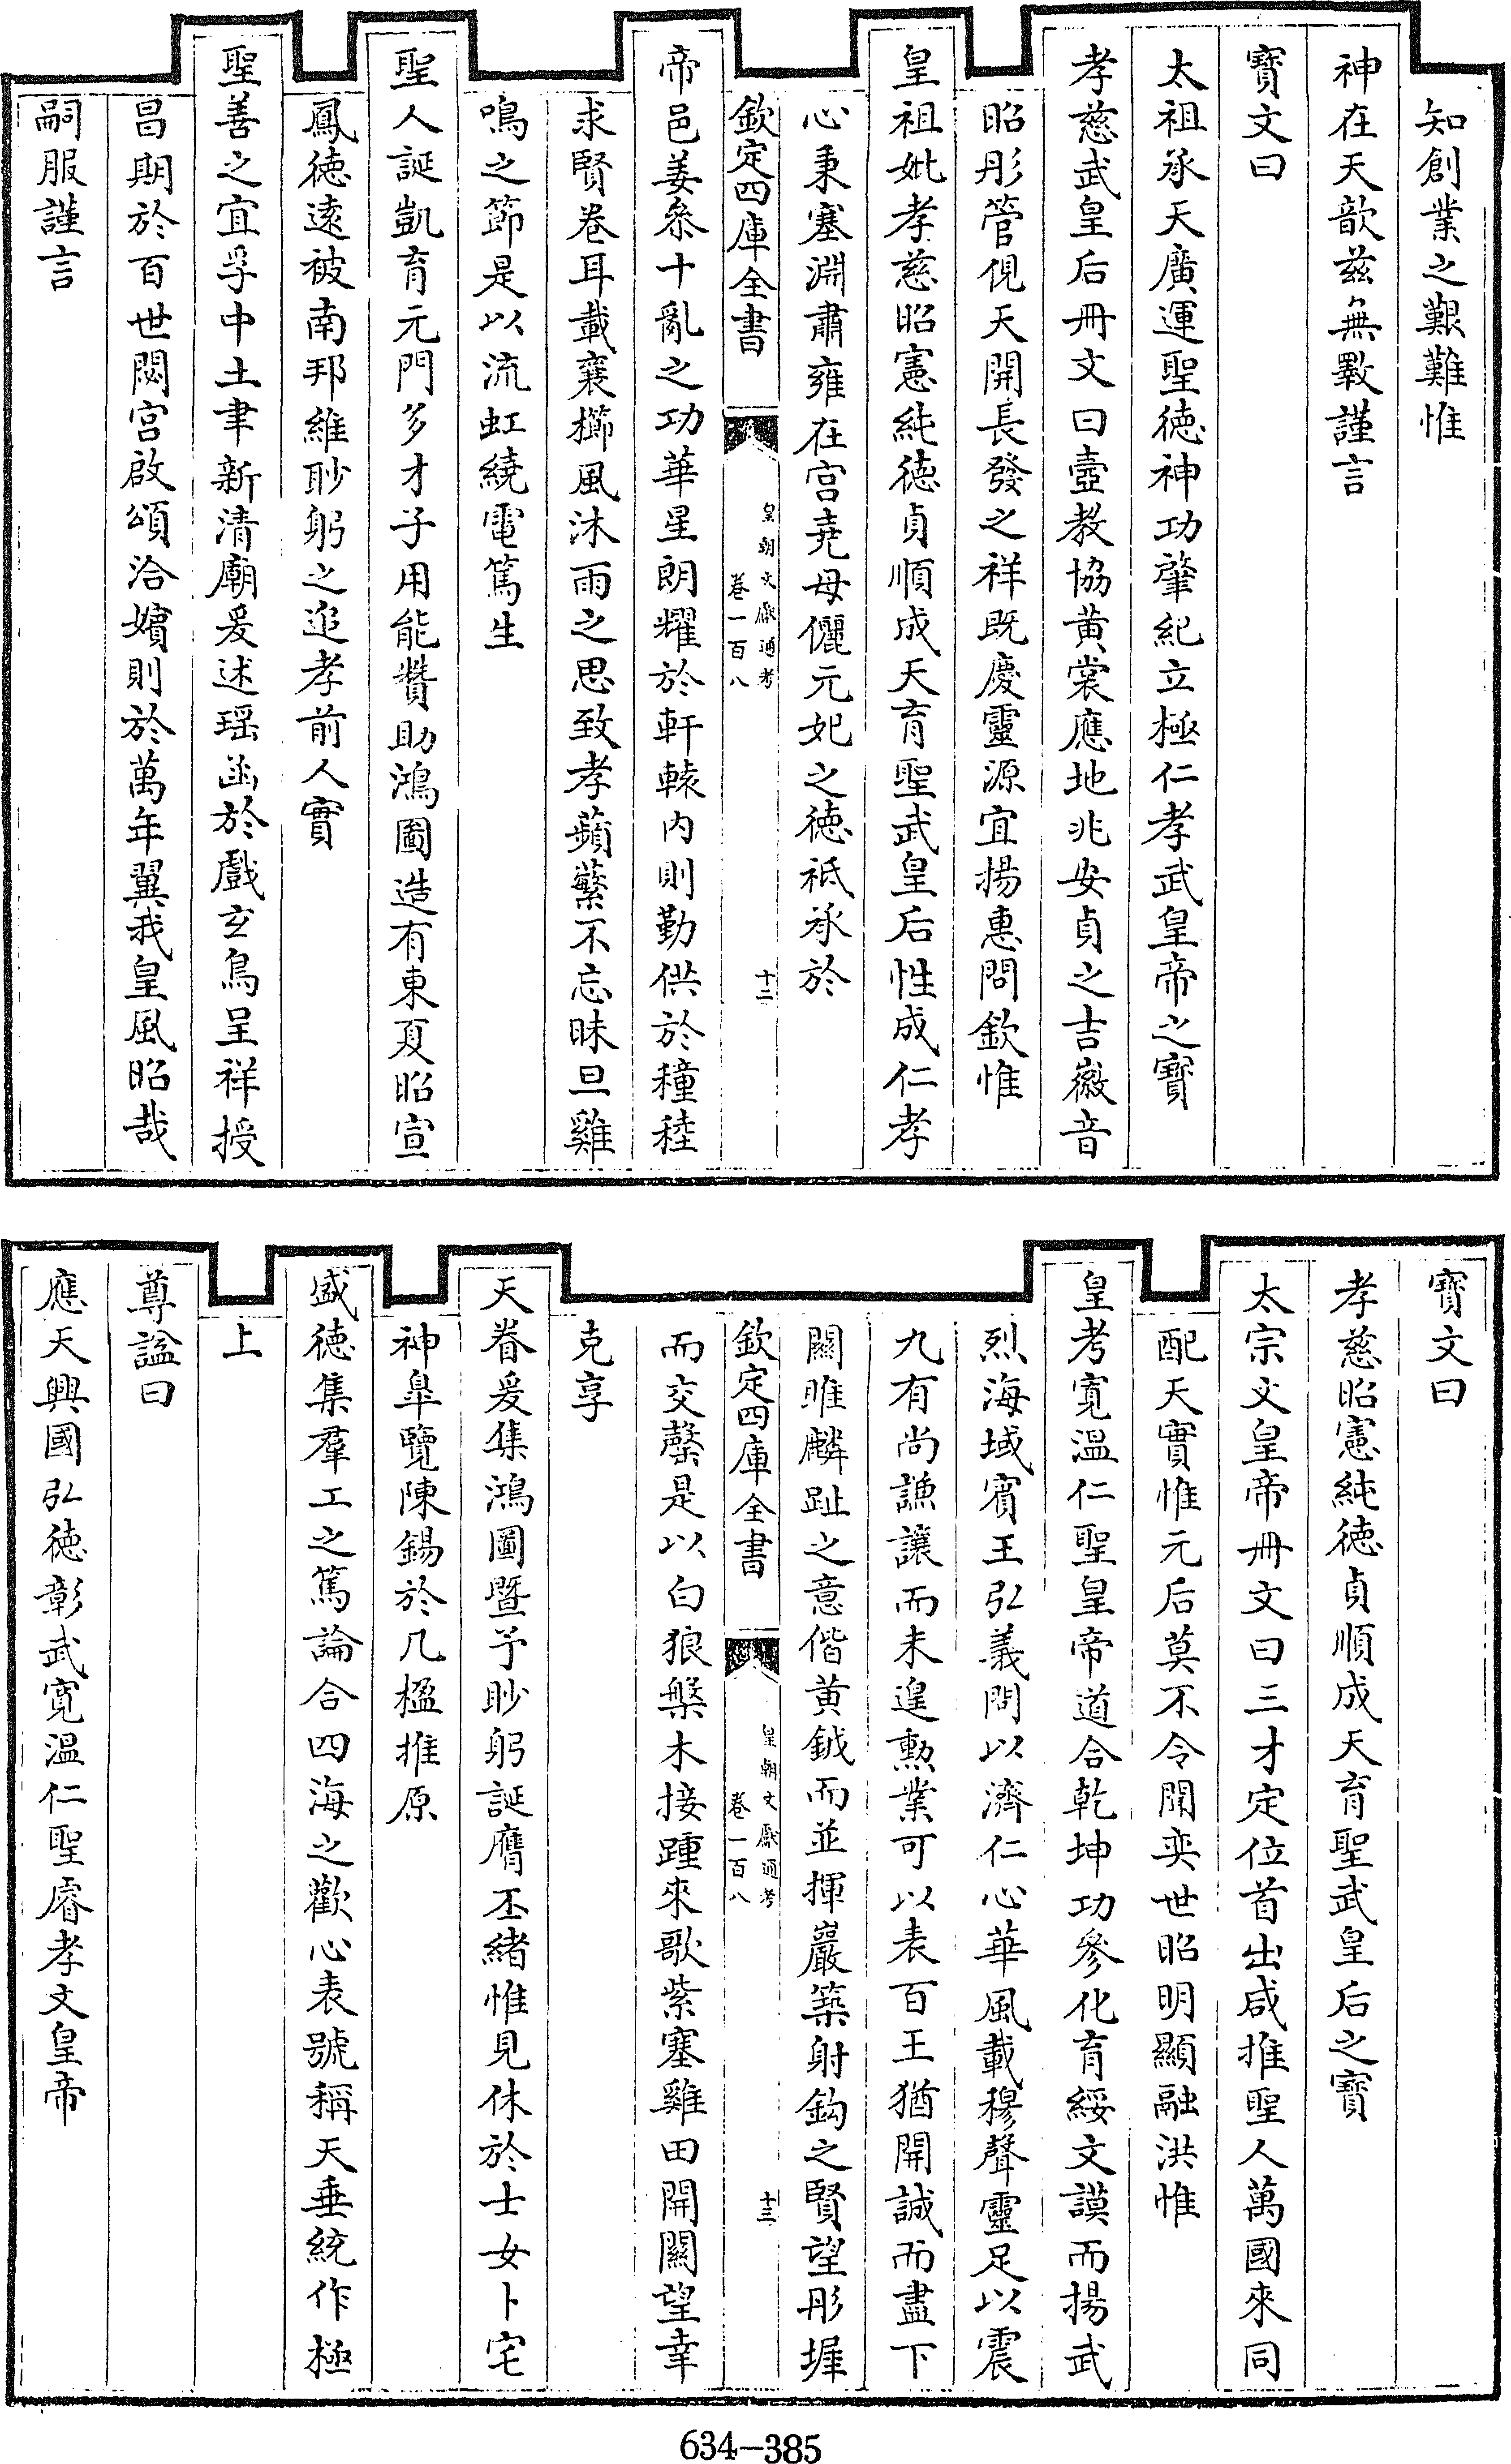 知創業之艱難惟
神在天歆兹無斁謹言
寶文曰
太祖承天廣運聖徳神功肇紀立極仁孝武皇帝之寶
孝慈武皇后冊文曰壼教協黄裳應地兆安貞之吉徽音
昭彤管俔天開長發之祥既慶靈源宜揚惠問欽惟
皇祖妣孝慈昭憲純徳貞順成天育聖武皇后性成仁孝
心秉塞淵肅雍在宫堯母儷元妃之徳祗承於
欽定四庫全書
皇朝文獻通考
卷一百八
十二
帝邑姜叅十亂之功華星朗耀於軒轅内則勤供於穜稑
求賢卷耳載襄櫛風沐雨之思致孝蘋蘩不忘昧旦雞
鳴之節是以流虹繞電篤生
聖人誕凱育元門多才子用能贊助鴻圖造有東夏昭宣
鳳徳逺被南邦維眇躬之追孝前人實
聖善之宜孚中土聿新清廟爰述瑶函於戲玄鳥呈祥授
昌期於百世閟宫啟頌洽嬪則於萬年翼我皇風昭哉
嗣服謹言
寶文曰
孝慈昭憲純徳貞順成天育聖武皇后之寶
太宗文皇帝冊文曰三才定位首出咸推聖人萬國來同
配天實惟元后莫不令聞奕世昭明顯融洪惟
皇考寛溫仁聖皇帝道合乾坤功參化育綏文謨而揚武
烈海域賓王弘義問以濟仁心華風載穆聲靈足以震
九有尚謙讓而未遑勲業可以表百王猶開誠而盡下
闗雎麟趾之意偕黄鉞而並揮巖築射鈎之賢望彤墀
欽定四庫全書
皇朝文獻通考
卷一百八
十三
而交罄是以白狼槃木接踵來歌紫塞雞田開闗望幸
克享
天眷爰集鴻圖暨予眇躬誕膺丕緒惟見休於士女卜宅
神臯覽陳錫於几楹推原
盛徳集羣工之篤論合四海之歡心表號稱天垂統作極
上
尊諡曰
應天興國弘徳彰武寛溫仁聖睿孝文皇帝
634-385